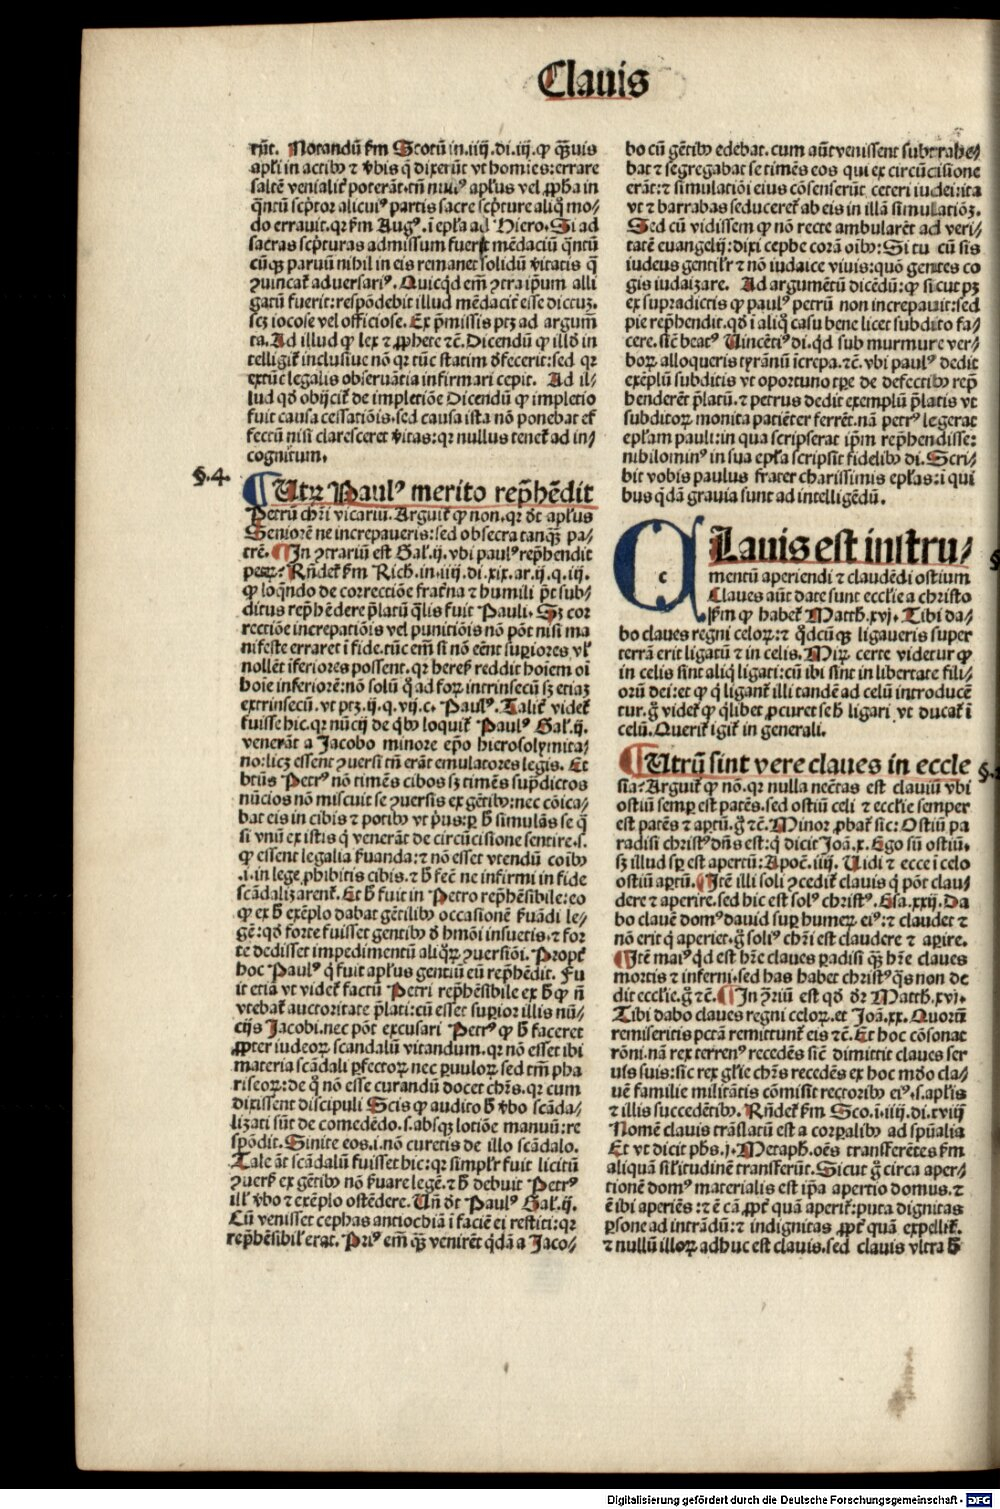 Clauis
rũt. Notandũ ẜm Scotũ in .iiij. di. iij. ꝙ q̃uis
apl̃i in actibꝰ ⁊ v̾bis q̃ dixerũt vt homĩes: errare
saltẽ venialit̾ poterãt. tñ nullꝰ apl̃us vel ꝓph̃a in
q̃ntũ scp̃tor alicuiꝰ partis sacre scp̃ture aliq̃ mo⸗
do errauit. qꝛ ẜm Augꝰ. ĩ epl̃a ad Hiero. Si ad
sacras scp̃turas admissum fuerit mẽdaciũ q̃ntũ
cũqꝫ paruũ nihil in eis remanet solidũ v̾itatis q̃
ꝯuincat̾ aduersariꝰ. Quicq̃d em̃ ꝯtra ip̃um alli
gatũ fuerit: respõdebit illud mẽdacit̾ esse dictuꝫ.
scꝫ iocose vel officiose. Ex p̃missis ptꝫ ad argum̃
ta. Ad illud ꝙ lex ⁊ ꝓphete ⁊c̃. Dicendũ ꝙ illd̾ in
telligit̾ inclusiue nõ qꝛ tũc statim d̾fecerit: sed qꝛ
extũc legalis obseruãtia infirmari cepit. Ad il⸗
lud qd̾ obijcit̾ de impletiõe Dicendũ ꝙ impletio
fuit causa cessatiõis. sed causa ista nõ ponebat ef
fectũ nisi claresceret v̾itas: qꝛ nullus tenet̾ ad in⸗
cognitum.
§.4.
Utꝝ Paulꝰ merito rep̃hẽdit
Petrũ ch̃ri vicariũ. Arguit̾ ꝙ non. qꝛ d̾t apl̃us
Seniorẽ ne increpaueris: sed obsecra tanqꝫ pa⸗
trẽ. In ꝯtrariũ est Gal̾. ij. vbi paulꝰ rep̃hendit
petꝝ? Rñdet̾ ẜm Rich. in .iiij. di. xix. ar. ij. q. iij.
ꝙ loq̃ndo de correctiõe frat̾na ⁊ humili p̃t sub⸗
ditus rep̃hẽdere p̃latũ q̃lis fuit Pauli. Sꝫ cor
rectiõe increpatiõis vel punitiõis nõ põt nisi ma
nifeste erraret ĩ fide. tũc em̃ si nõ eẽnt sup̃iores vl̾
nollẽt ĩferiores possent. qꝛ heres̾ reddit hoĩem oĩ
hoĩe inferiorẽ: nõ solũ q̃ ad foꝝ intrinsecũ sꝫ etiaꝫ
extrinsecũ. vt ptꝫ. ij. q. vij. c. Paulꝰ. Talit̾ videt̾
fuisse hic. qꝛ nũcij de q̃bꝰ loquit̾ Paulꝰ Gal̾. ij.
venerãt a Jacobo minore ep̃o hierosolymita⸗
no: licꝫ essent ꝯuersi tñ erãt emulatores legis. Et
btũs Petrꝰ nõ timẽs cibos sꝫ timẽs sup̃dictos
nũcios nõ miscuit se ꝯuersis ex gẽtibꝰ: nec cõica⸗
bat eis in cibis ⁊ potibꝰ vt p̾us: ꝑ h̾ simulãs se q̃
si vnũ ex istis q̃ venerãt de circũcisione sentire. s.
ꝙ essent legalia s̾uanda: ⁊ nõ esset vtendũ coĩbꝰ
.i. in lege ꝓhibitis cibis. ⁊ h̾ fec̾ ne infirmi in fide
scãdalizarent̾. Et h̾ fuit in Petro rep̃hẽsibile: eo
ꝙ ex h̾ exẽplo dabat gẽtilibꝰ occasionẽ s̾uãdi le⸗
gẽ: qd̾ forte fuisset gentibꝰ d̾ hm̃õi insuetis. ⁊ for
te dedisset impedimentũ aliq̃ꝝ ꝯuersiõi. Propt̾
hoc Paulꝰ q̃ fuit apl̃us gentiũ eũ rep̃hẽdit. Fu
it etiã vt videt̾ factũ Petri rep̃hẽsibile ex h̾ ꝙ ñ
vtebat̾ auctoritate p̃lati: cũ esset sup̃ior illis nũ⸗
cijs Jacobi. nec põt excusari Petrꝰ ꝙ h̾ faceret
ꝓpter iudeoꝝ scandalũ vitandum. qꝛ nõ esset ibi
materia scãdali ꝑfectoꝝ nec ꝑuuloꝝ sed tm̃ pha
riseoꝝ: de q̃ nõ esse curandũ docet ch̃rs. qꝛ cum
dixissent discipuli Scis ꝙ audito h̾ v̾bo scãda⸗
lizati sũt de comedẽdo. s. absqꝫ lotiõe manuũ: re
spõdit. Sinite eos. i. nõ curetis de illo scãdalo.
Tale aũt scãdalũ fuisset hic: qꝛ simpl̾r fuit licitũ
ꝯuers̾ ex gẽtibꝰ nõ s̾uare legẽ. ⁊ h̾ debuit Petrꝰ
ill̾ v̾bo ⁊ exẽplo ostẽdere. Uñ d̾t Paulꝰ Gal̾. ij.
Cũ venisset cephas antiochiã ĩ faciẽ ei restiti: qꝛ
rep̃hẽsibil̾ erat. Priꝰ em̃ q̃ꝫ venirẽt q̃dã a Jaco⸗
bo cũ gẽtibꝰ edebat. cum aũt venissent subtrahe⸗
bat ⁊ segregabat se timẽs eos qui ex circũcisione
erãt: ⁊ simulatiõi eius cõsenserũt ceteri iudei: ita
vt ⁊ barrabas seduceret̾ ab eis in illã simulatiõꝫ.
Sed cũ vidissem ꝙ nõ recte ambularẽt ad veri⸗
tatẽ euangelij: dixi cephe corã oĩbꝰ: Si tu cũ sis
iudeus gentil̾r ⁊ nõ iudaice viuis: quõ gentes co
gis iudaizare. Ad argumẽtũ dicẽdũ: ꝙ sicut pꝫ
ex supradictis ꝙ paulꝰ petrũ non increpauit: sed
pie rep̃hendit. qd̾ ĩ aliq̃ casu bene licet subdito fa⸗
cere. sic̾ beatꝰ Uincẽtiꝰ di. q̃d sub murmure ver⸗
boꝝ alloqueris tyrãnũ ĩcrepa. ⁊c̃. vbi paulꝰ dedit
exẽplũ subditis vt oportuno tꝑe de defectibꝰ rep̃
henderẽt p̃latũ. ⁊ petrus dedit exemplũ p̃latis vt
subditoꝝ monita patiẽter ferrẽt. nã petrꝰ legerat
epl̃am pauli: in qua scripserat ip̃m rep̃hendisse:
nihilominꝰ in sua epl̃a scripsit fidelibꝰ di. Scri⸗
bit vobis paulus frater charissimis epl̃as: ĩ qui
bus q̃dã grauia sunt ad intelligẽdũ.
c
Lauis est instru⸗
mentũ aperiendi ⁊ claudẽdi ostium
Claues aũt date sunt eccl̃ie a christo
ẜm ꝙ habet̾ Matth. xvj. Tibi da⸗
bo claues regni celoꝝ: ⁊ q̃dcũqꝫ ligaueris super
terrã erit ligatũ ⁊ in celis. Miꝝ certe videtur ꝙ
in celis sint aliq̃ ligati: cũ ibi sint in libertate fili⸗
orũ dei: et ꝙ q̃ ligant̾ illi tandẽ ad celũ introducẽ
tur. g̾ videt̾ ꝙ q̃libet ꝓcuret se h̾ ligari vt ducat̾ ĩ
celũ. Querit̾ igit̾ in generali.
Utrũ sint vere claues in eccle
§.1
sia? Arguit̾ ꝙ nõ. qꝛ nulla nec̾tas est clauiũ vbi
ostiũ semꝑ est patẽs. sed ostiũ celi ⁊ eccl̃ie semper
est patẽs ⁊ aꝑtũ. g̾ ⁊c̃. Minor ꝓbat̾ sic: Ostiũ pa
radisi christꝰ dñs est: q̃ dicit Joã. x. Ego sũ ostiũ.
sꝫ illud sꝑ est apertũ: Apoc̾. iiij. Uidi ⁊ ecce ĩ celo
ostiũ aꝑtũ. Itẽ illi soli ꝯcedit̾ clauis q̃ põt clau⸗
dere ⁊ aperire. sed hic est solꝰ christꝰ. Esa. xxij. Da
bo clauẽ domꝰ dauid suꝑ humeꝝ eiꝰ: ⁊ claudet ⁊
nõ erit q̃ aperiet. g̾ soliꝰ ch̃ri est claudere ⁊ aꝑire.
Itẽ maiꝰ q̃d est h̾re claues ꝑadisi q̃ꝫ h̾re claues
mortis ⁊ inferni. sed has habet christꝰ q̃s non de
dit eccl̃ie. g̾ ⁊c̃. In ꝯ̾riũ est qd̾ d̾r Matth. xvj.
Tibi dabo claues regni celoꝝ. et Joã. xx. Quorũ
remiseritis pctã remittunt̾ eis ⁊c̃. Et hoc cõsonat
rõni. nã rex terrenꝰ recedẽs sic̾ dimittit claues ser
uis suis: sic rex gl̃ie ch̃rs recedẽs ex hoc mũdo cla⸗
uẽ familie militãtis cõmisit rectoribꝰ eiꝰ. s. apl̃is
⁊ illis succedẽtibꝰ. Rñdet̾ ẜm Sco. ĩ. iiij. di. xviij
Nomẽ clauis trãslatũ est a corꝑalibꝰ ad sp̃ualia
Et vt dicit ph̃s. j. Metaph. oẽs transferẽtes ẜm
aliquã sil̾itudinẽ transferũt. Sicut g̾ circa aper⸗
tionẽ domꝰ materialis est ip̃a apertio domus. ⁊
ẽ ibi aperiẽs: ⁊ ẽ cã ꝓpt̾ quã aperit̾: puta dignitas
ꝑsone ad intrãdũ: ⁊ indignitas ꝓpt̾ quã expellit̾.
⁊ nullũ illoꝝ adhuc est clauis. sed clauis vltra h̾
Digitalisierung gefördert durch die Deutsche Forschungsgemeinschaft - DFG